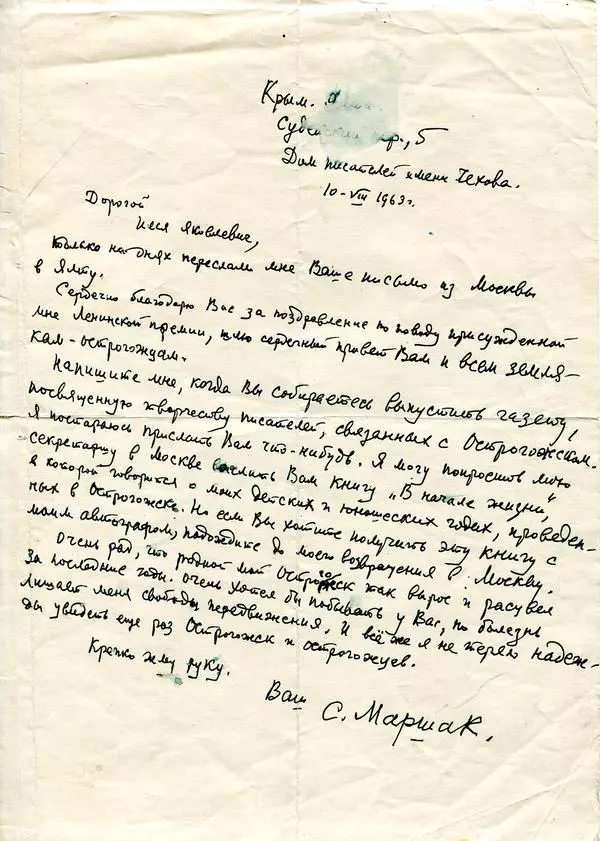 Крым. Ялта.
пер., 5
Дом писателей имени Чехова.
10-VIII 1963 г.
Дорогой
Яковлевич,
только на днях переслали мне Ваше письмо из Москвы
в Ялту.
Сердечно благодарю Вас за поздравление по поводу присужденной
мне Ленинской премии, шлю сердечный привет Вам и всем земля-
кам-острогождам.
Напишите мне, когда Вы собираетесь выпустить газету,
посвященную творчеству писателей, связанных с Острогожском.
Я постараюсь прислать Вам что-нибудь. Я могу попросить мою
секретаршу в Москве выслать Вам книгу „В начале жизни",
в которой говорится о моих детских и юношеских годах, проведен-
ных в Острогожске. Но если Вы хотите получить эту книгу с
моим автографом, подождите до моего возвращения в Москву.
Очень рад, что родной мой Острогожск так вырос и расцвел
за последние годы. Очень хотел бы побывать у Вас, но болезнь
лишает меня свободы передвижения. И всё же я не теряю надеж-
ды увидеть еще раз Острогожск и острогожцев.
Крепко жму руку.
Ваш
С. Маршак.